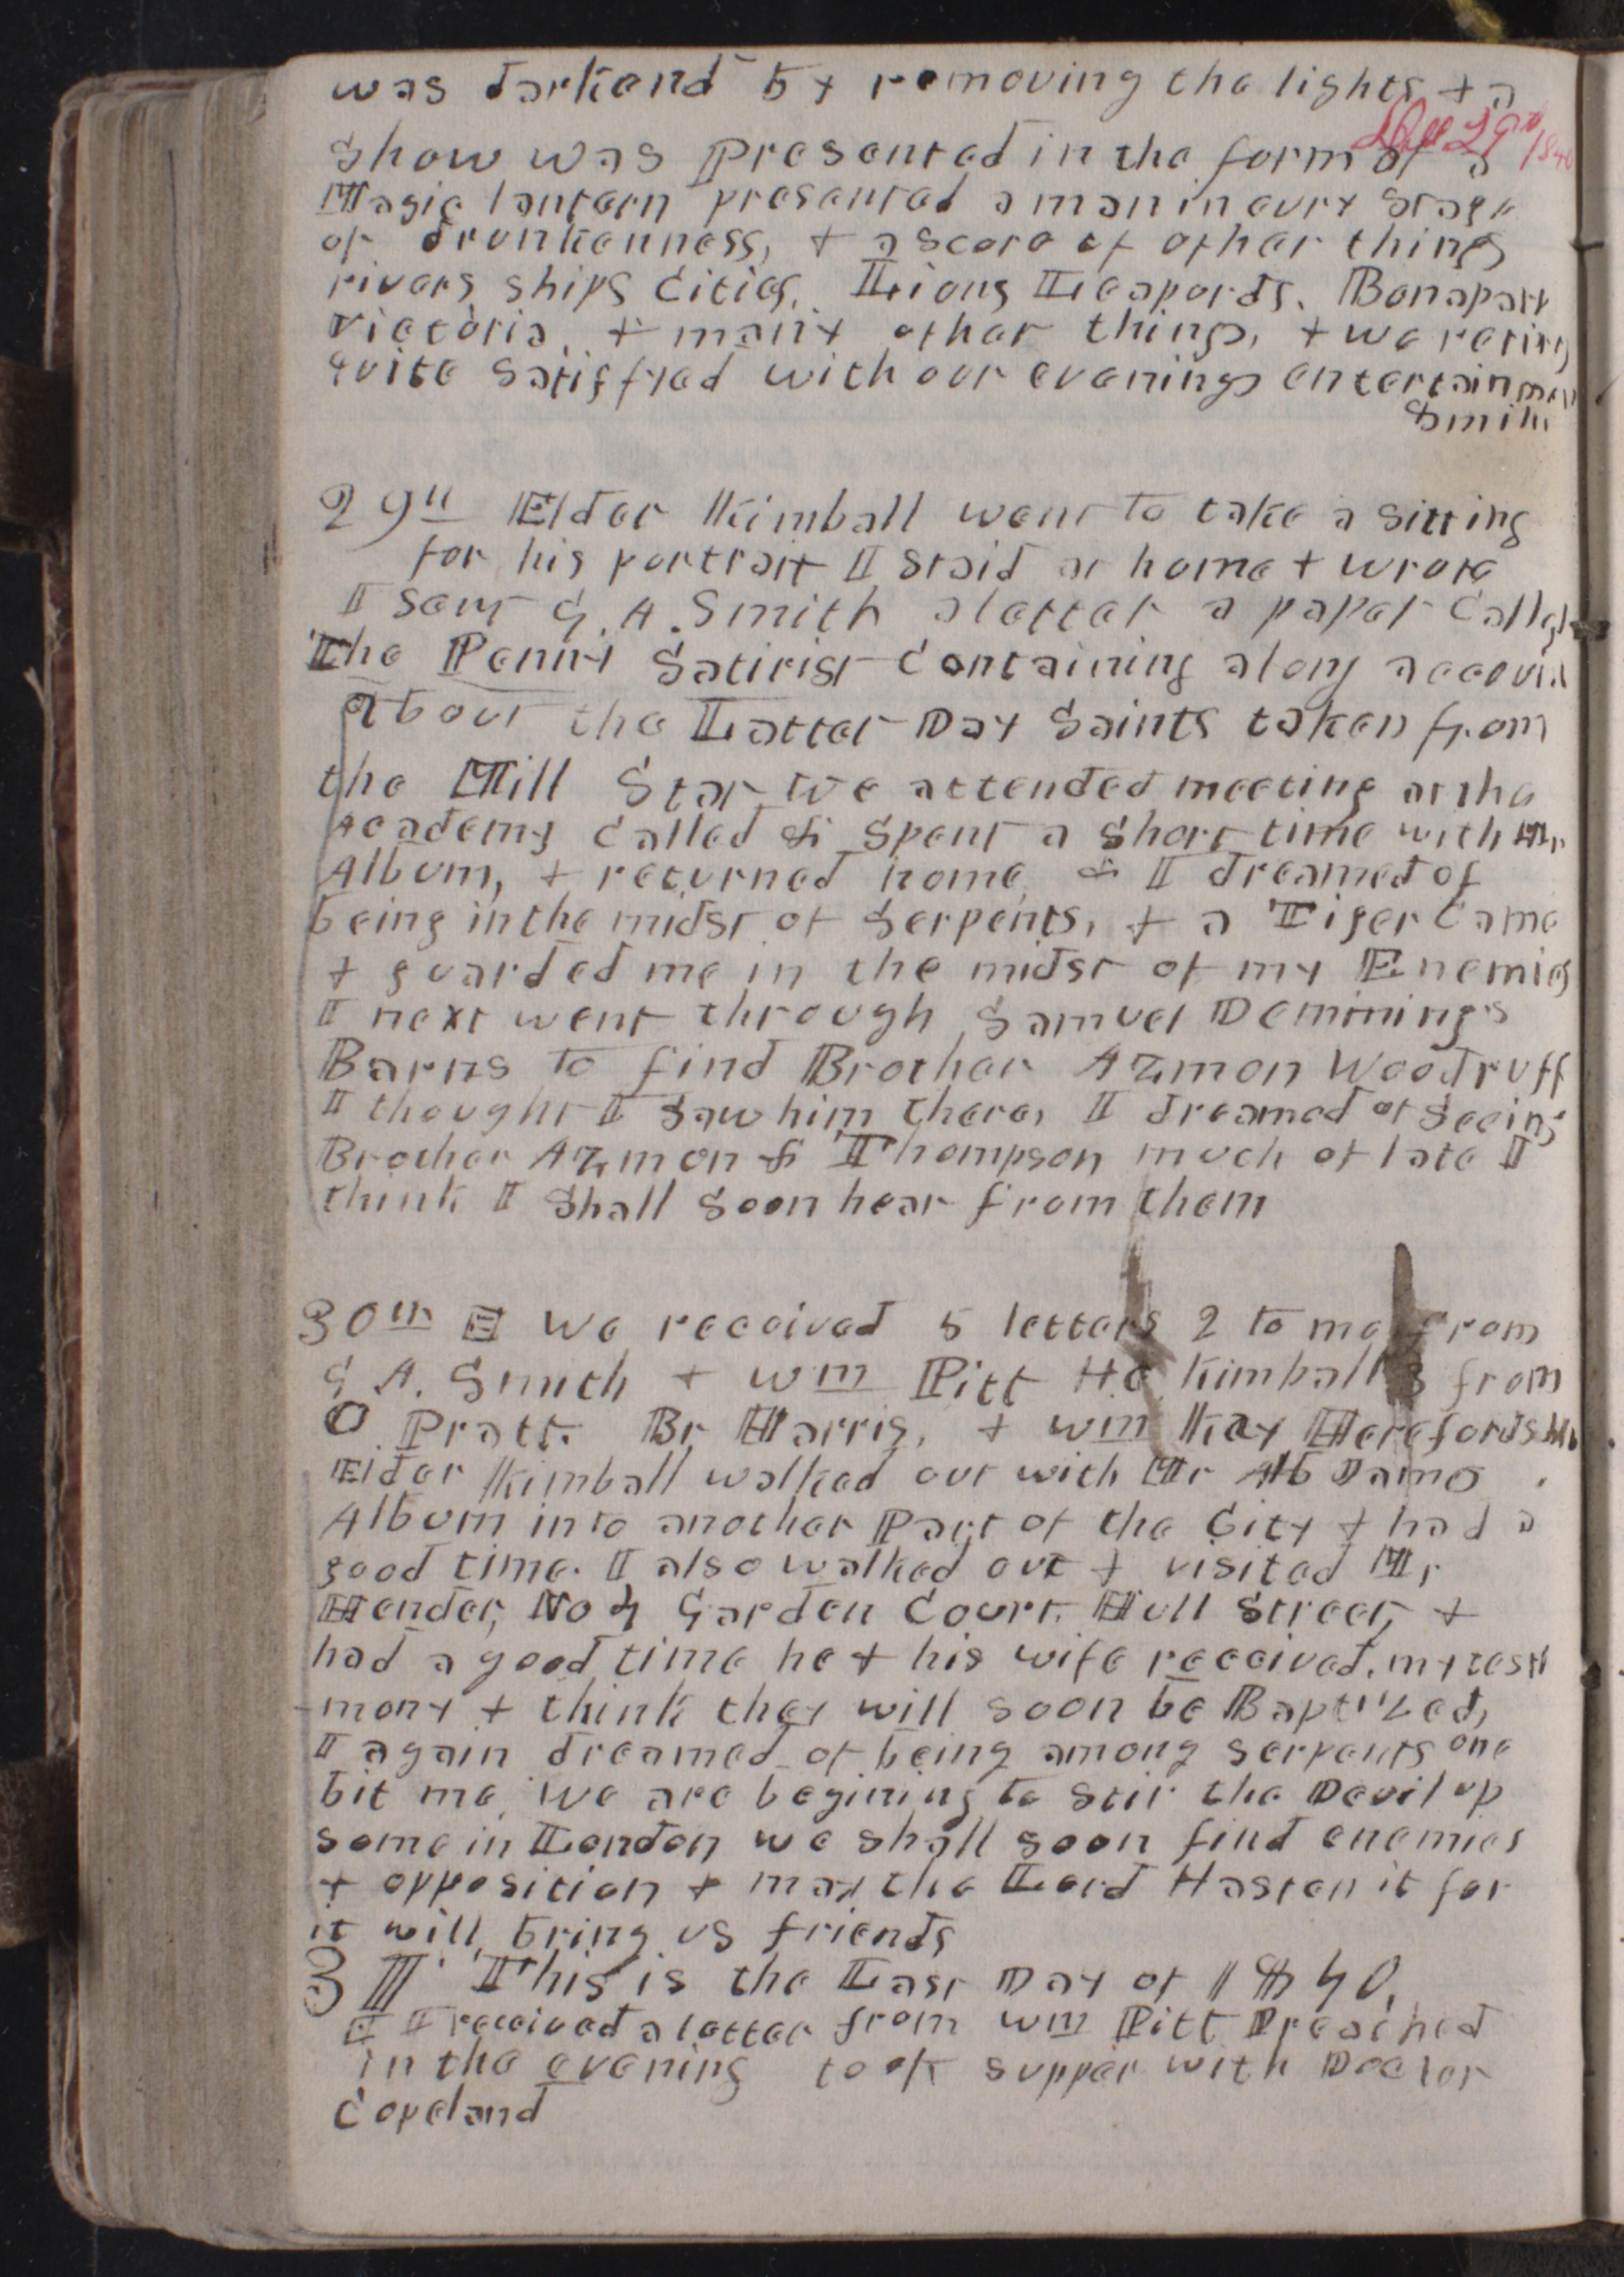 was darkend by removing the lights & a
Dec 29th 1840
show was presented in the form of a
Magic lantern presented a man in evry stage
of drunkenness, & a score of other things
rivers ships Cities, Lions Leapords. Bonapart
victoria, & many other things, & we retired
quite satisfyed with our evenings entertainment
Smith
29th Elder Kimball went to take a sitting
for his portrait I staid at home & wrote
I sent G. A. Smith a letter a paper Called
The Penny Satirist Containing a long account
about the Latter Day Saints taken from
the Mill Star we attended meeting at the
Academy Called & spent a short time with Mr
Album, & returned home & I dreamed of
being in the midst of Serpents, & a Tiger Came
& guarded me in the midst of my Enemies
I next went through Samuel Demming's
Barns to find Brother Azmon Woodruff
I thought I saw him there, I dreamed of Seeing
Brother Azmon & Thompson much of late I
think I shall soon hear from them
30th We received 5 letters 2 to me from
G A. Smith & Wm Pitt H C Kimball 3 from
O Pratt. Br Harris, & Wm Kay Herefordshire
Elder Kimball walked out with Mr James
Album into another Part of the City & had a
good time. I also walked out & visited Mr
Hender, No 4 Garden Court. Hull Street, &
had a good time he & his wife received my testi
-mony & think they will soon be Baptized,
I again dreamed of being among serpents one
bit me, we are begining to stir the Devil up
some in London we shall soon find enemies
& opposition & may the Lord Hasten it for
it will bring us friends
31 This is the Last Day of 1840,
I received a letter from Wm Pitt Preached
in the evening took supper with Doctor
Copeland